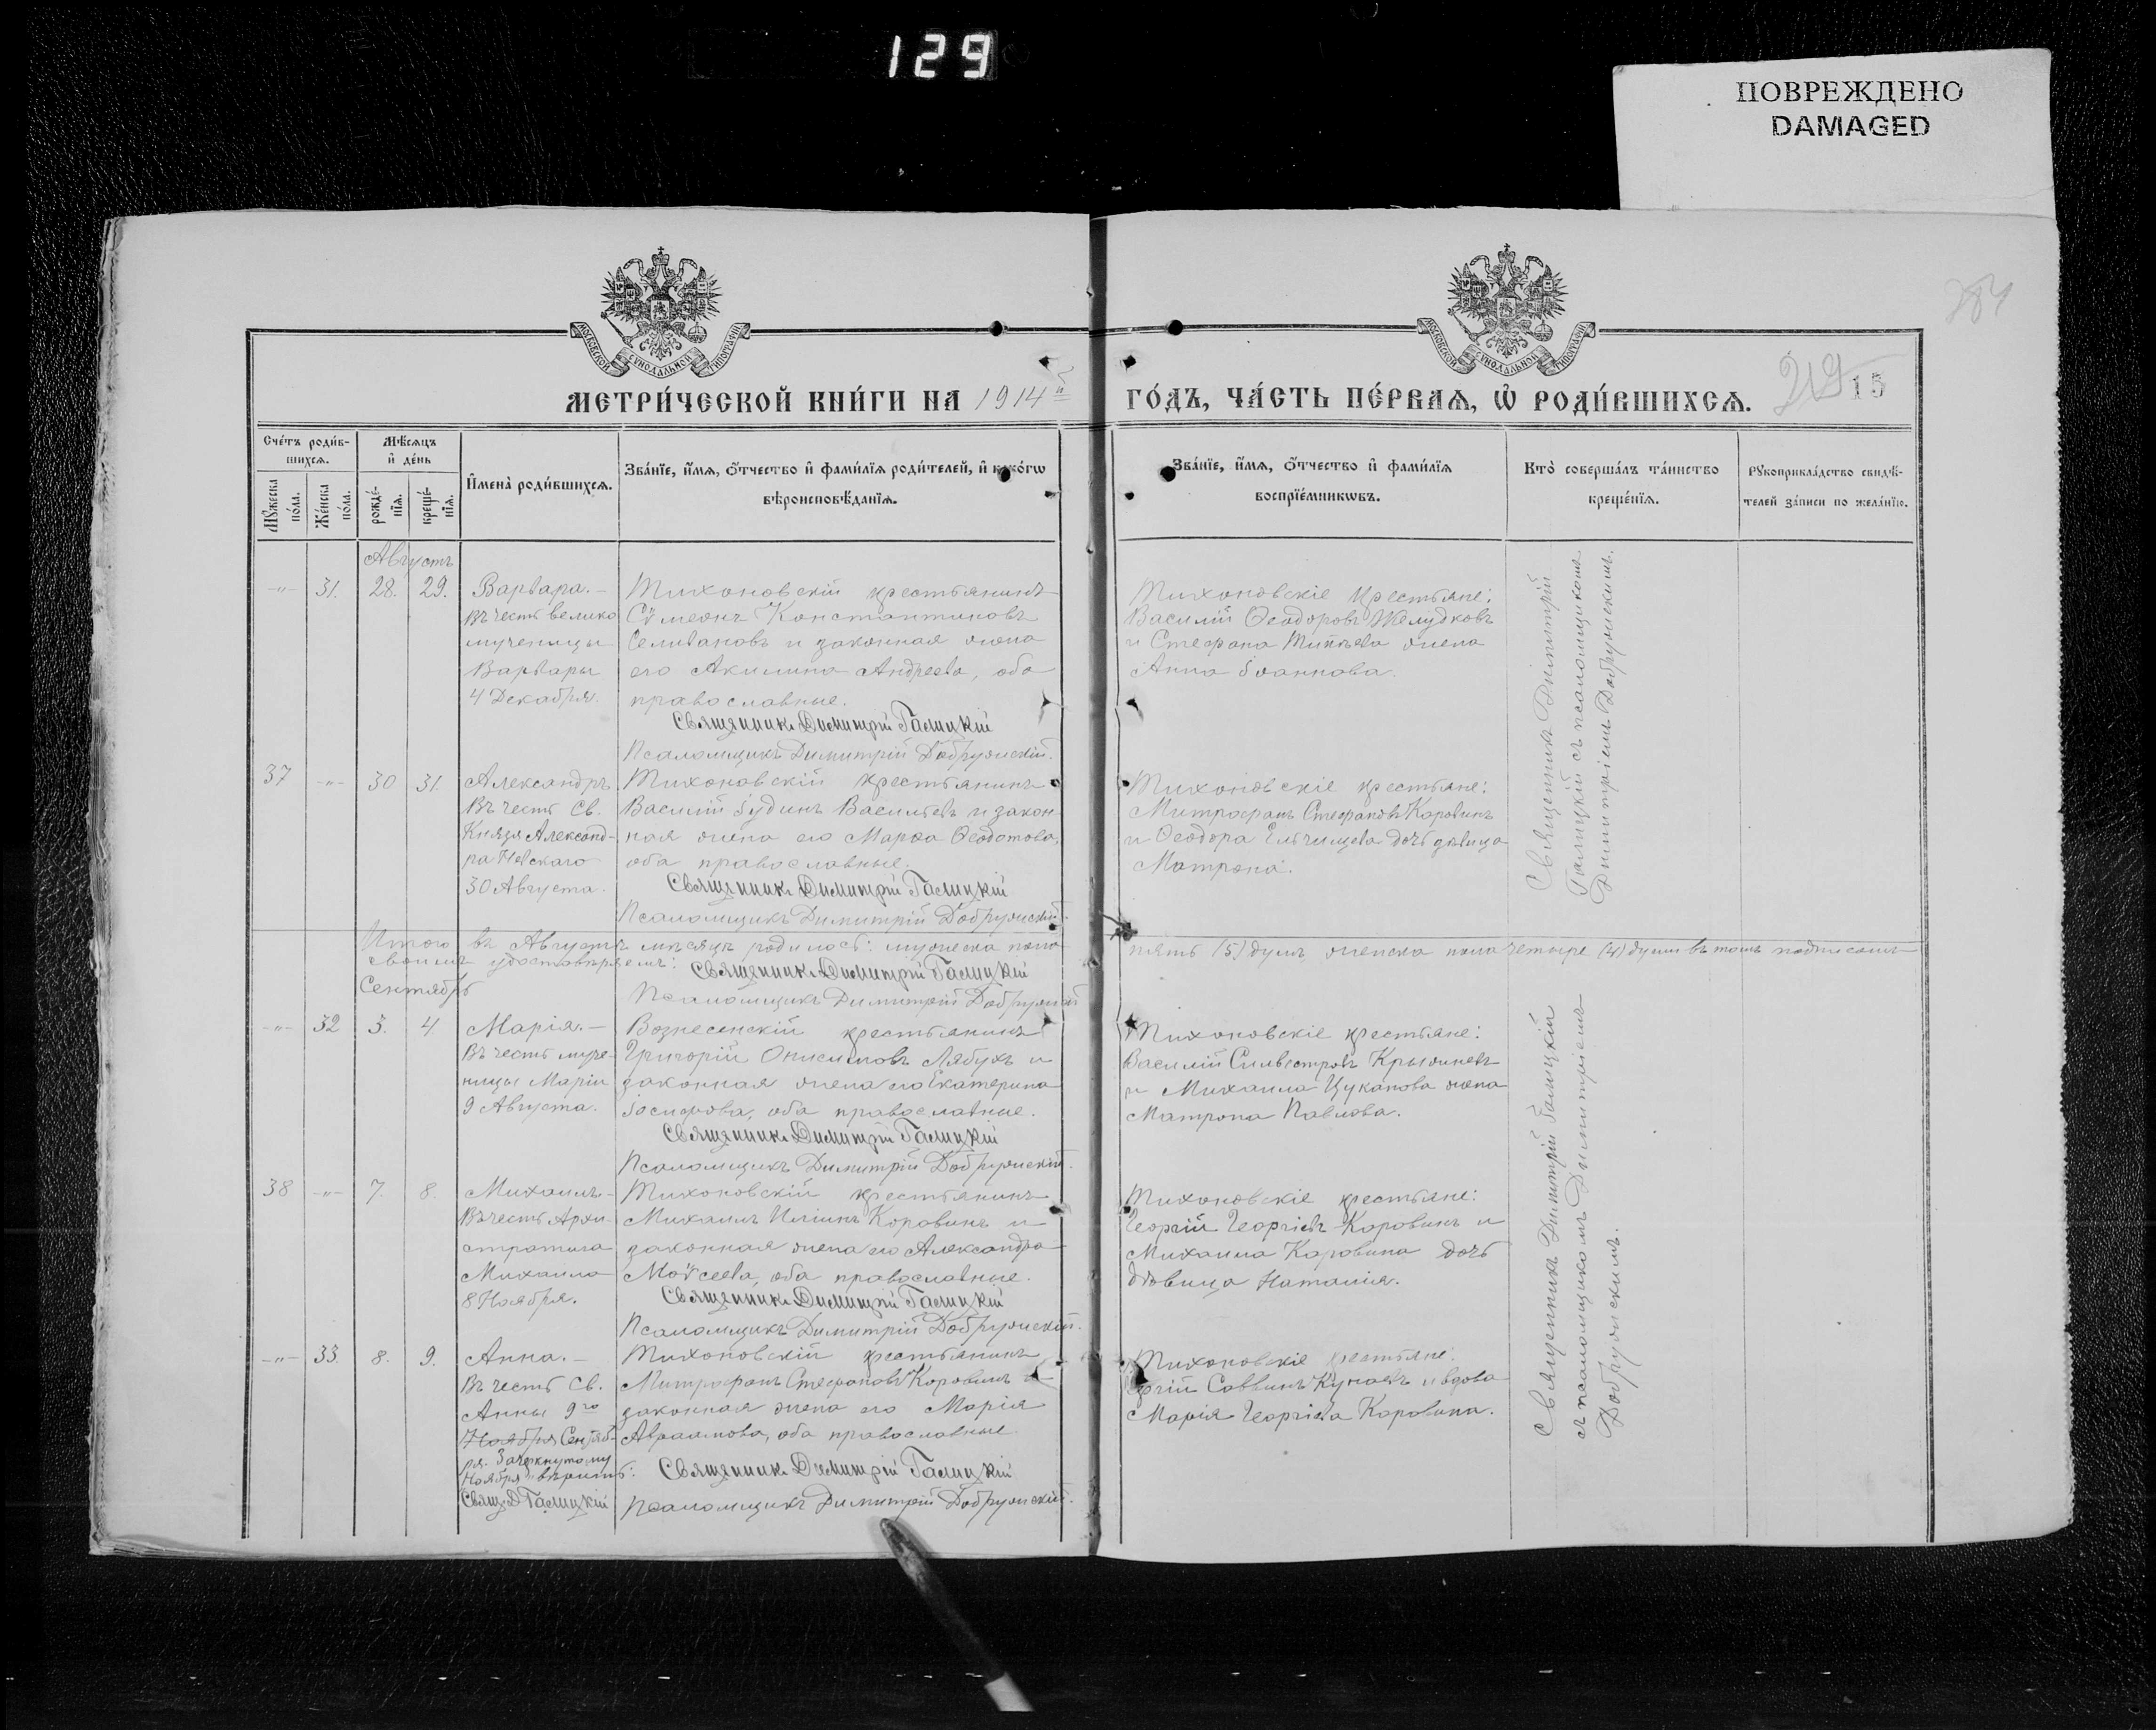 129
ПОВРЕЖДЕНО
DAMAGED
МОСКОВСКОЙ СѴНОДАЛЬНОЙ ТИПОГРАФІИ
МОСКОВСКОЙ СѴНОДАЛЬНОЙ ТИПОГРАФІИ
МЕТРИ́ЧЕСКОЙ КНИ́ГИ НА 1914й
ГО́ДЪ, ЧА́СТЬ ПЕ́РВАѦ, Ѡ҆ РОДИ́ВШИХСѦ.
219
15
Сче́тъ роди́в-
шихсѧ.
Мꙋ́жеска по́ла.
Же́нска по́ла.
Мѣ́сѧцъ
и҆ де́нь
рожде́-
нїѧ.
креще́-
нїѧ.
И҆мена̀ роди́вшихсѧ.
Зва́нїе, и҆́мѧ, ѻ҆́тчество и҆ фами́лїѧ роди́телей, и҆ како́гѡ
вѣроисповѣ́данїѧ.
Зва́нїе, и҆́мѧ, ѻ҆́тчество и҆ фами́лїѧ
воспрїе́мникѡвъ.
Кто̀ соверша́лъ та́инство
креще́нїѧ.
Рꙋкоприкла́дство свидѣ́-
телей за́писи по жела́нїю.
Августъ
-"- 31. 28. 29. Варвара.-
Въ честь велико
мученицы
Варвары
4 Декабря.
Тихоновскій крестьянинъ
Сѵмеонъ Константиновъ
Селивановъ и законная жена
его Акилина Андреева, оба
православные.
Священникъ Димитрій Галицкій
Псаломщикъ Димитрій Добружскій.
Тихоновскіе крестьяне:
Василій Ѳеодоровъ Желудковъ
и Стефана жена
Анна Іоаннова.
Священникъ Димитрій
Галицкій съ псаломщикомъ
Димитріемъ Добружскимъ.
37 -"- 30 31. Александръ
Въ честь Св.
Князя Александ-
ра Невскаго
30 Августа.
Тихоновскій крестьянинъ
Василій Іудинъ Васильевъ и закон
ная жена его Марѳа Ѳеодотова,
оба православные.
Священникъ Димитрій Галицкій
Псаломщикъ Димитрій Добружскій.
Тихоновскіе крестьяне:
Митрофанъ Стефановъ Коровинъ
и Ѳеодора дочь дѣвица
Матрона.
Итого въ Августѣ мѣсяцѣ родилось: мужеска пола
пять (5) душъ, женска пола четыре (4) души въ томъ подписомъ
своимъ удостовѣряемъ: Священникъ Димитрій Галицкій
Псаломщикъ Димитрій Добружскій
Сентябрь
-"- 32 3. 4 Марія.-
Въ честь муче-
ницы Маріи
9 Августа.
Вознесенскій крестьянинъ
Григорій Онисимовъ Лябухъ и
законная жена его Екатерина
Іосифова, оба православные.
Священникъ Димитрій Галицкій
Псаломщикъ Димитрій Добружскій.
Тихоновскіе крестьяне:
Василій Сильвестровъ
и Михаила Цуканова жена
Матрона Павлова.
Священникъ Димитрій Галицкій
съ псаломщикомъ Димитріемъ
Добружскимъ.
38 -"- 7. 8. Михаилъ.-
Въ честь Архи-
стратига
Михаила
8 Ноября.
Тихоновскій крестьянинъ
Михаилъ Иліинъ Коровинъ и
законная жена его Александра
Моѵсеева, оба православные.
Священникъ Димитрій Галицкій
Псаломщикъ Димитрій Добружскій.
Тихоновскіе крестьяне:
Георгій Георгіевъ Коровинъ и
Михаила Коровина дочь
дѣвица Наталія.
-"- 33. 8. 9. Анна.-
Въ честь Св.
Анны 9го
Ноября Сентяб-
ря. Зачеркнутому
"Ноября" вѣрить:
Свящ. Д Галицкій
Тихоновскій крестьянинъ
Митрофанъ Стефановъ Коровинъ и
законная жена его Марія
Авраамова, оба православные.
Священникъ Димитрій Галицкій
Псаломщикъ Димитрій Добружскій.
Тихоновскіе крестьяне:
Саввинъ и вдова
Марія Георгіева Коровина.